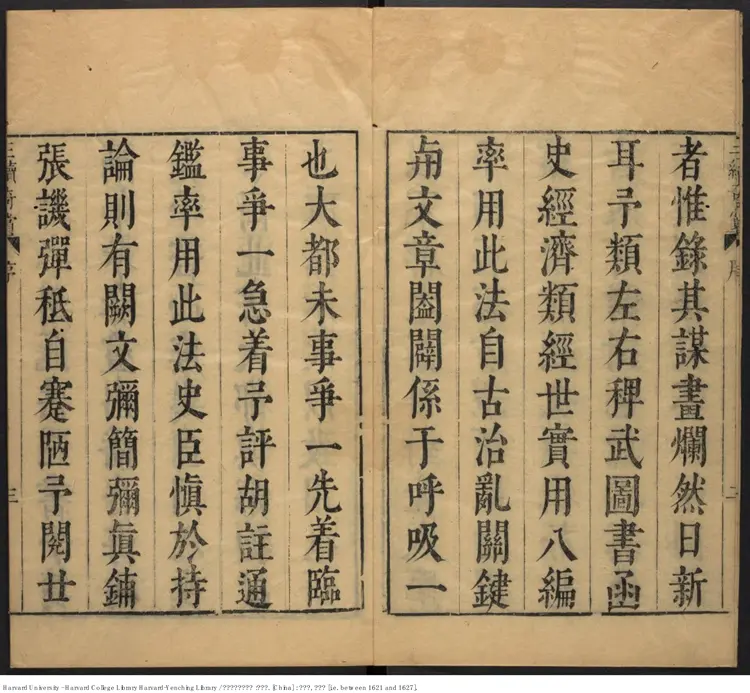 者惟錄其謀畫爛然日新
耳予類左右稗武圖書函
史經濟類經世實用八編
率用此法自古治亂關鍵
冊文章闔闢係于呼吸一
也大都未事爭一先着臨
事爭一急着予評胡註通
鑑率用此法史臣慎於持
論則有闕文彌簡彌眞鋪
張譏彈秪自蹇陋予閱廿
序
三
二
Harvard University - Harvard College Library Harvard-Yenching Library / ???????? :???. [China] : ???, ??? [ie. between 1621 and 1627].